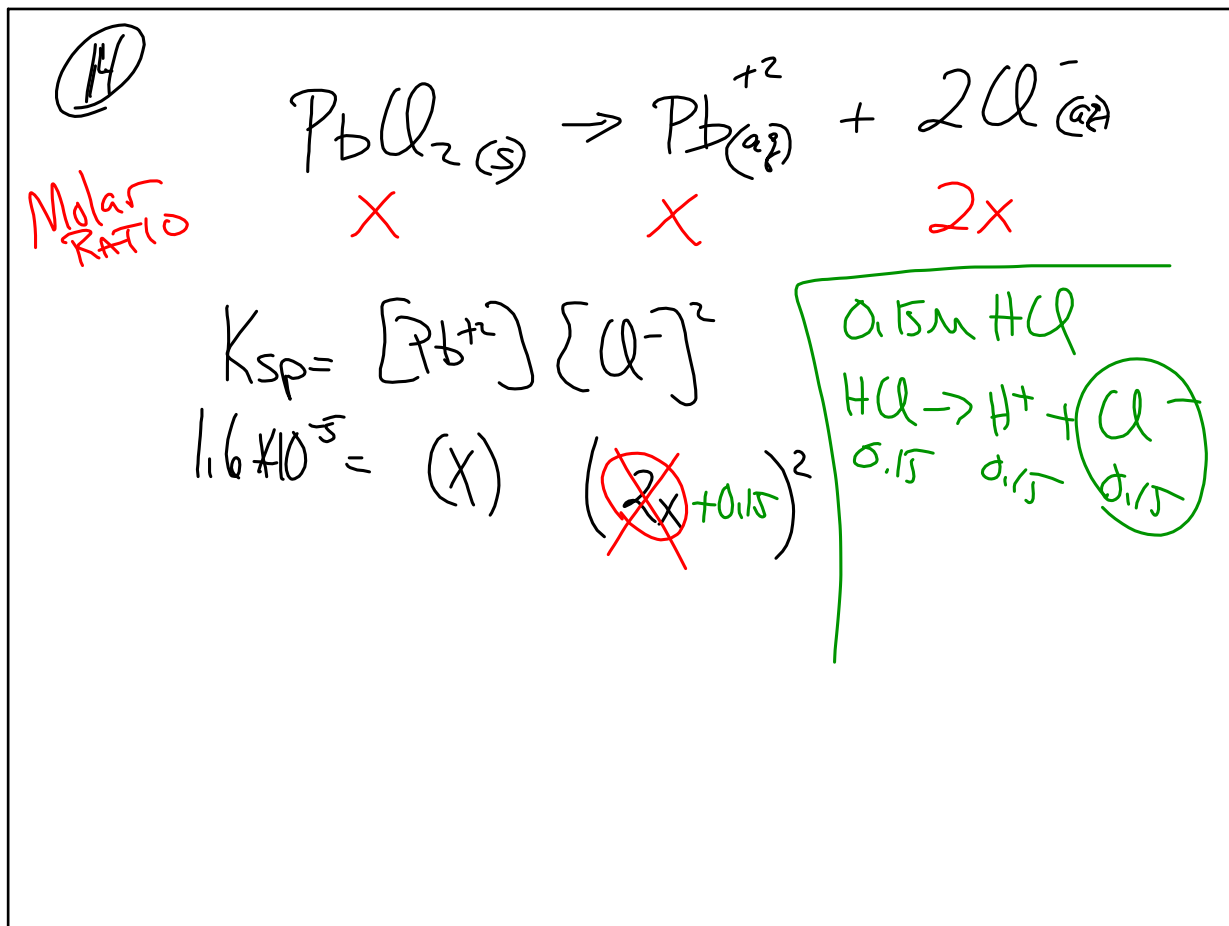 14
PbCl₂ (s) → Pb⁺² (aq) + 2Cl⁻ (aq)
Molar RATIO
X X 2x
Ksp = [Pb⁺²] [Cl⁻]²
1.6x10⁻⁵ = (X) (2x +0.15)²
0.15M HCl
HCl → H⁺ + Cl⁻
0.15 0.15 0.15